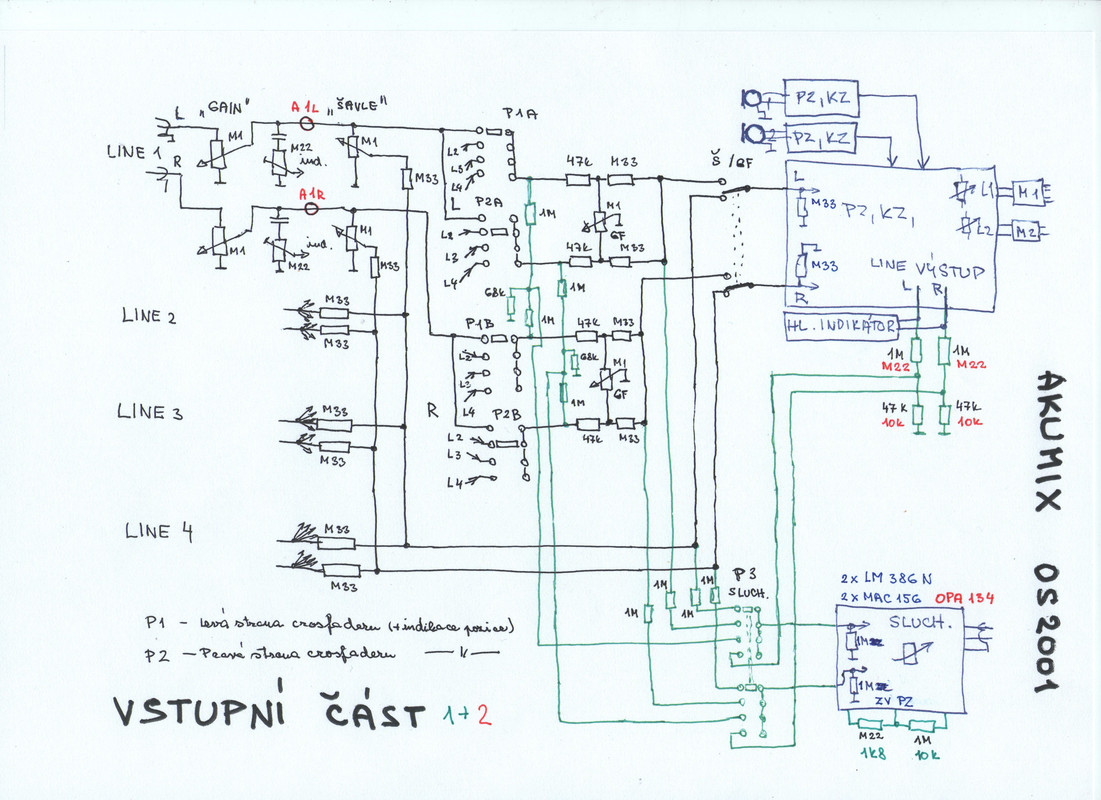 „GAIN"
A1L
„ŠAVLE"
P1A
P2, KZ
P2, KZ
L
M1
M22
ind.
M1
L2
L3
L4
47k
M33
Š / GF
LINE 1
R
M33
L
P2A
1M
M1
GF
L
M33
P2, KZ,
L1
M1
L2
M2
A1R
M1
M22
ind.
M1
M33
L2
L3
L4
47k
M33
M33
R
LINE VÝSTUP
L R
HL. INDIKÁTOR
68k
1M
1M
LINE 2
M33
M33
P1B
47k
M33
L2
L3
L4
68k
1M
M1
GF
1M
M22
1M
M22
LINE 3
M33
M33
R
P2B
L2
L3
L4
47k
M33
47k
10k
47k
10k
AKUMIX OS2001
LINE 4
M33
M33
P3
SLUCH.
1M
1M
1M
1M
2x LM 386 N
2x MAC 156 OPA 134
SLUCH.
1M
1M
ZV P2
M22
1k8
1M
10k
P1 – Levá strana crosfaderu (+indikace pozice)
P2 – Pravá strana crosfaderu —ıı—
VSTUPNÍ ČÁST 1+2